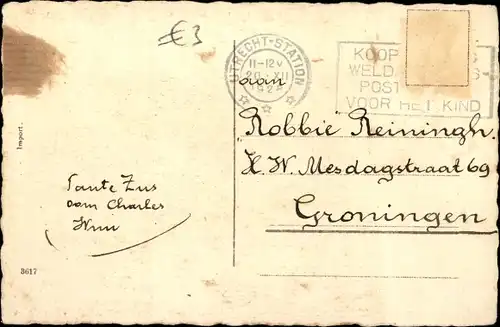 €3
UTRECHT-STATION
11-12V
20 XII
192
KOOP
WELDA
POST
VOOR HET KIND
aan
"Robbie" Reiningh.
H. W. Mesdagstraat 69
Groningen
Tante Zus
oom Charles
Wim
Import.
3617